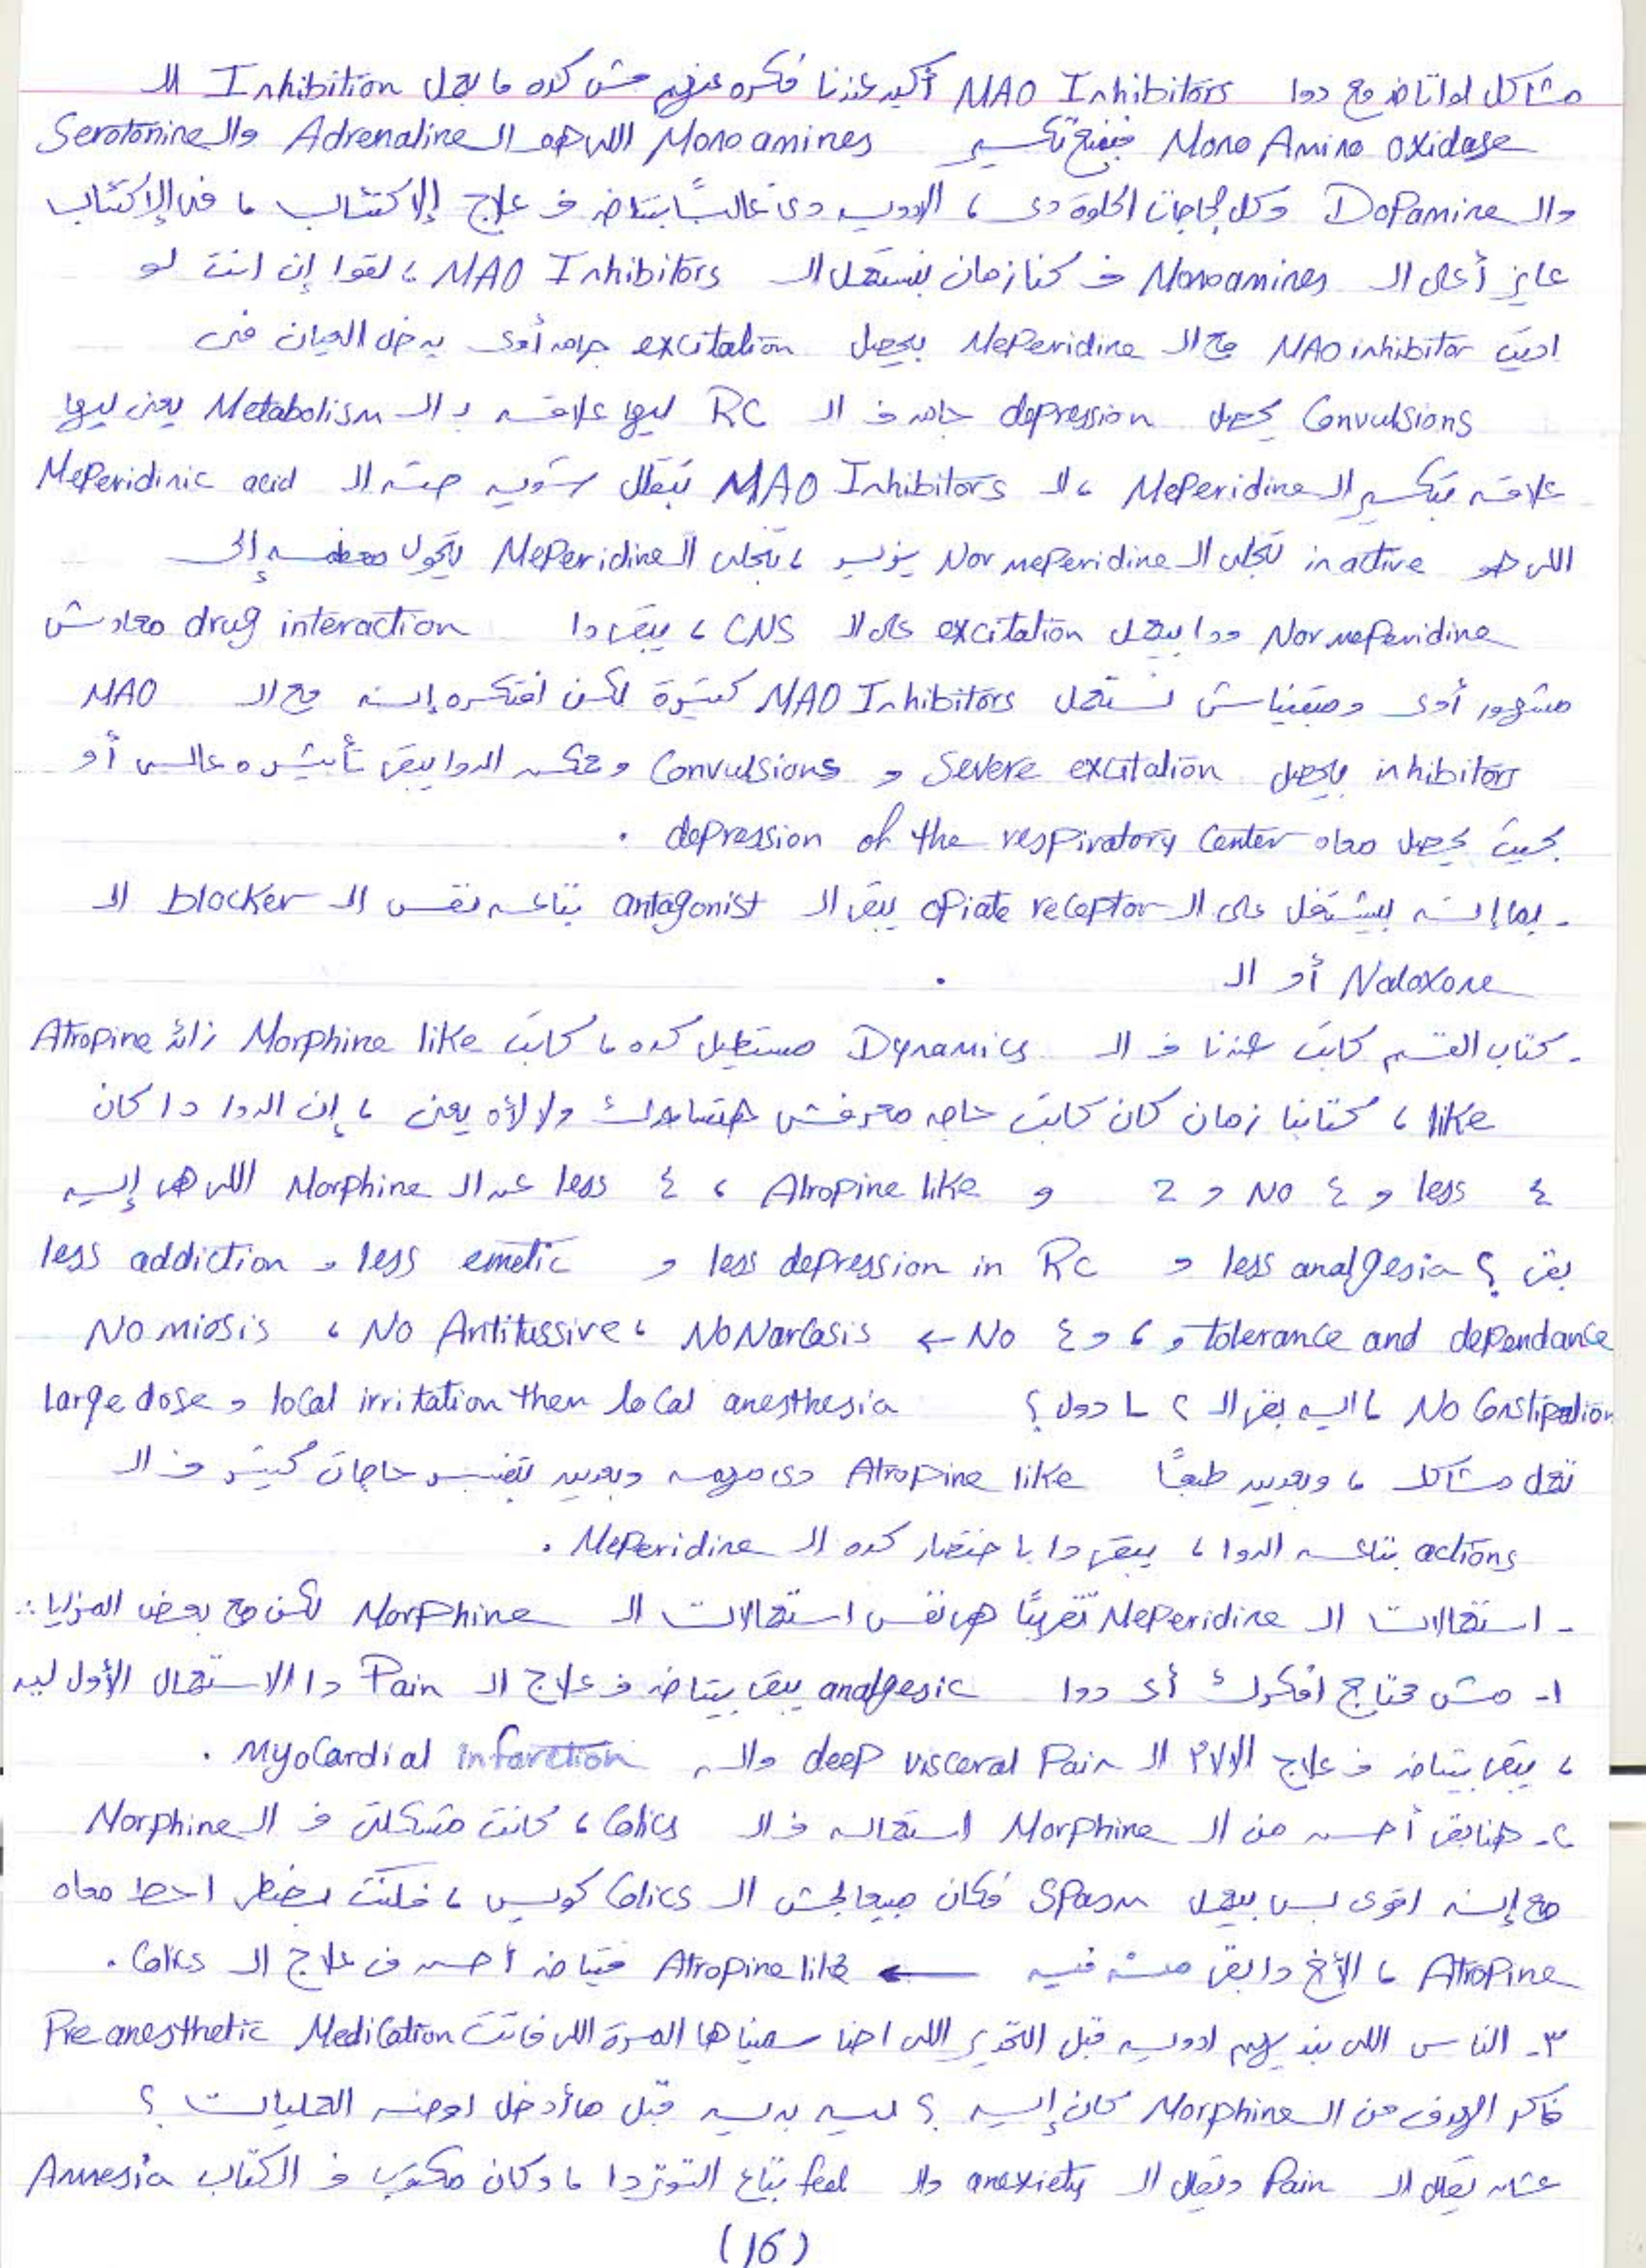 مشاكل لو اتاخد مع دوا MAO Inhibitors أكيد عندنا فكره عنهم مش كده ، بيعمل Inhibition الـ
Mono Amino oxidase فبيمنع تكسير Monoamines اللي هو الـ Adrenaline والـ Serotonine
والـ Dopamine وكل الحاجات الحلوة دي ، الادويه دي غالباً بتتاخد فـ علاج الاكتئاب ، فى الإكتئاب
عايز أعلى الـ Monoamines فـ كنا زمان بنستعمل الـ MAO Inhibitors ، لقوا إن انت لو
اديت MAO inhibitor مع الـ Meperidine بيحصل excitation جامد أوى يدخل العيان فى
Convulsions يحصل depression جامد فـ الـ RC ليها علاقه بـ الـ Metabolism يعنى ليها
علاقه بتكسير الـ Meperidine ، الـ MAO Inhibitors بتقلل شويه حتة الـ Meperidinic acid
اللى هو inactive تخلى الـ Normeperidine يزيد ، تخلى الـ Meperidine يتحول معظمه إلى
Normeperidine ودا بيعمل excitation على الـ CNS ، يبقى دا drug interaction معادش
مشهور أوى ومبقيناش نستعمل MAO Inhibitors كتيرة لكن افتكره إنه مع الـ MAO
inhibitors بيحصل Severe excitation و Convulsions وممكن الدوا يبقى تأثيره عالى أو
بحيث يحصل معاه depression of the respiratory Center .
- بما إنه بيشتغل على الـ opiate receptor يبقى الـ antagonist بتاعه نفس الـ blocker الـ
Naloxone أو الـ .
- كتاب القسم كاتب عندنا فـ الـ Dynamics مستطيل كده ، كاتب Morphine like زائد Atropine
like ، كتابنا زمان كان كاتب حاجه معرفش هتساعدك ولا لأه يعنى ، إن الدوا دا كان
٤ less و ٤ No و 2 و Atropine like ، ٤ less عن الـ Morphine اللى هى إيه
بقى ؟ less analgesia و less depression in RC و less emetic و less addiction
tolerance and dependance و ، و ٤ No ← No Narcosis ، No Antitussive ، No miosis
No Constipation ، ايه بقى الـ ٢ L دول ؟ local irritation then local anesthesia و Large dose
تعمل مشاكل ، وبعدين طبعاً Atropine like دى مهمه وبعدين بتفسر حاجات كتير فـ الـ
actions بتاعه الدوا ، يبقى دا باختصار كده الـ Meperidine .
- استعمالات الـ Meperidine تقريباً هى نفس استعمالات الـ Morphine لكن مع بعض المزايا :
١- مش محتاج افكرك أى دوا analgesic يبقى بيتاخد فـ علاج الـ Pain دا الاستعمال الأول ليه
، يبقى بيتاخد فـ علاج الآلام الـ deep visceral Pain والـ Myocardial infarction .
٢- هنا بقى أحسن من الـ Morphine استعماله فـ الـ Colics ، كانت مشكلتى فـ الـ Morphine
مع إنه اقوى بس بيعمل Spasm فكان مبيعالجش الـ Colics كويس ، فكنت بضطر احط معاه
Atropine ، الأخ دا بقى منه فيه ← Atropine like فيتاخد أحسن فى علاج الـ Colics .
٣- الناس اللى بنديهم ادويه قبل التخدير اللى احنا سميناها المرة اللى فاتت Pre anesthetic Medication
فاكر الهدف من الـ Morphine كان إيه ؟ ليه بديه قبل ما أدخل اوضه العمليات ؟
عشان يقلل الـ Pain ويقلل الـ anexiety والـ feel بتاع التوتر دا ، وكان مكتوب فـ الكتاب Amnesia
(16)